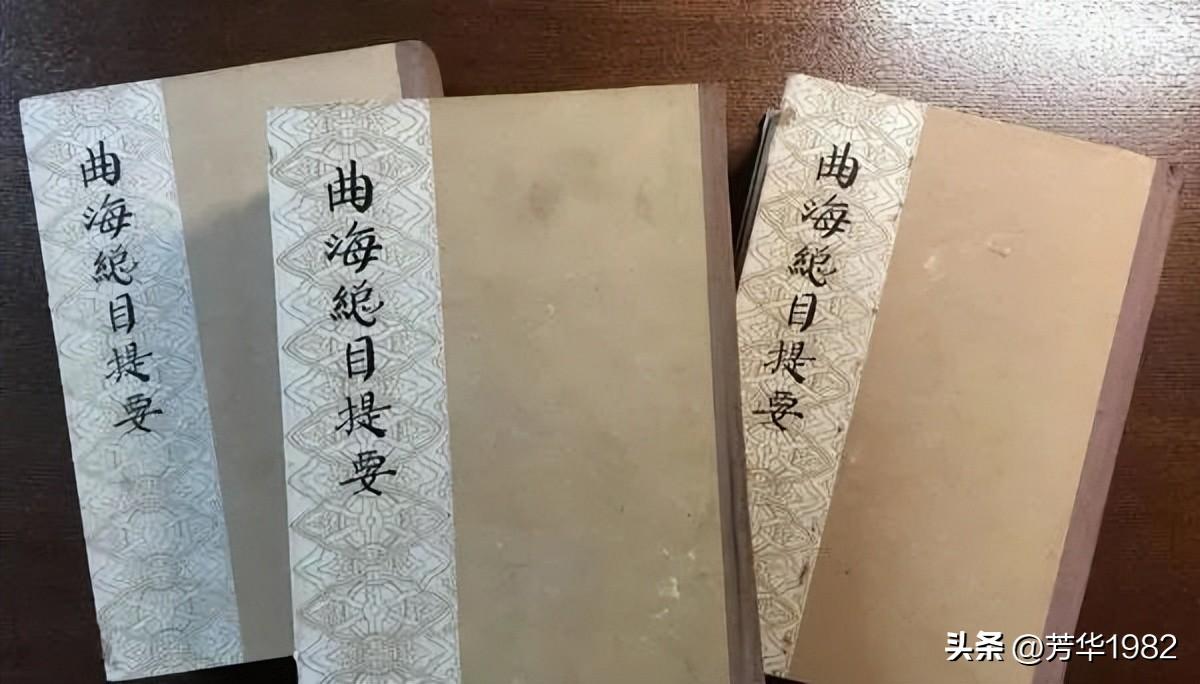 曲海総目提要
曲海総目提要
曲海総目提要
头条 @芳华1982